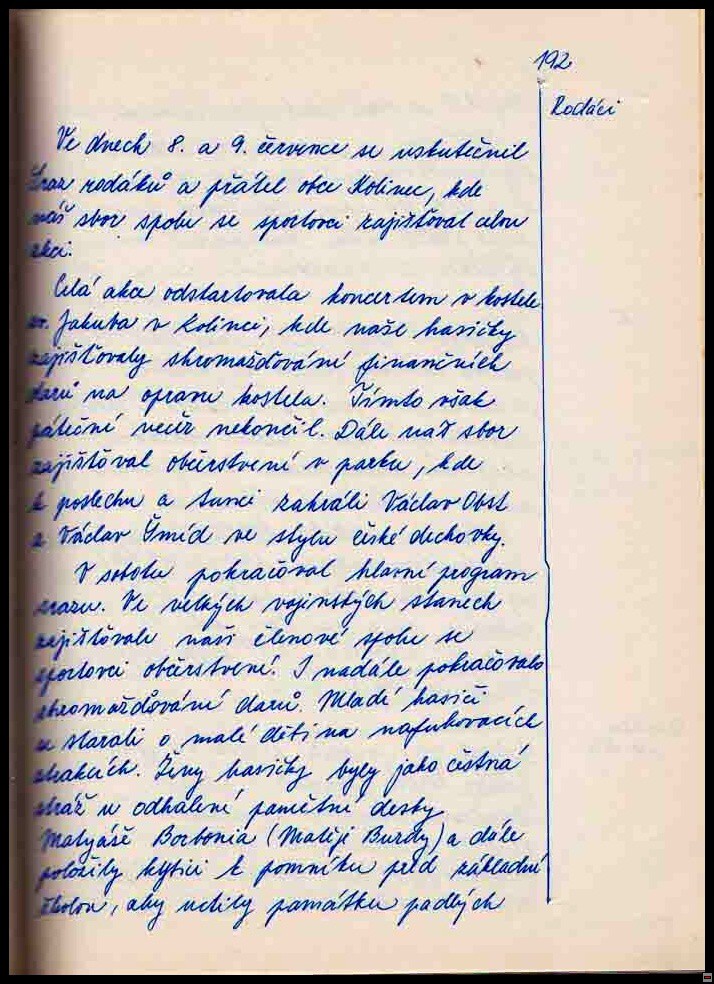 192
Rodáci
Ve dnech 8. a 9. července se uskutečnil
sraz rodáků a přátel obce Kolinec, kde
náš sbor spolu se sportovci zajišťoval celou
akci.
Celá akce odstartovala koncertem v kostele
sv. Jakuba v Kolinci, kde naše hasičky
zajišťovaly shromažďování finančních
darů na opravu kostela. Tímto však
páteční večer nekončil. Dále náš sbor
zajišťoval občerstvení v parku, kde
k poslechu a tanci zahráli Václav Obst
a Václav Šmíd ve stylu české dechovky.
V sobotu pokračoval hlavní program
srazu. Ve velkých vojenských stanech
zajišťovali naši členové spolu se
sportovci občerstvení. I nadále pokračovalo
shromažďování darů. Mladí hasiči
se starali o malé děti na nafukovacích
atrakcích. Ženy hasičky byly jako čestná
stráž u odhalení pamětní desky
Matyáše Borbonia (Matěji Burdy) a dále
položily kytici k pomníku před základní
školou, aby uctily památku padlých